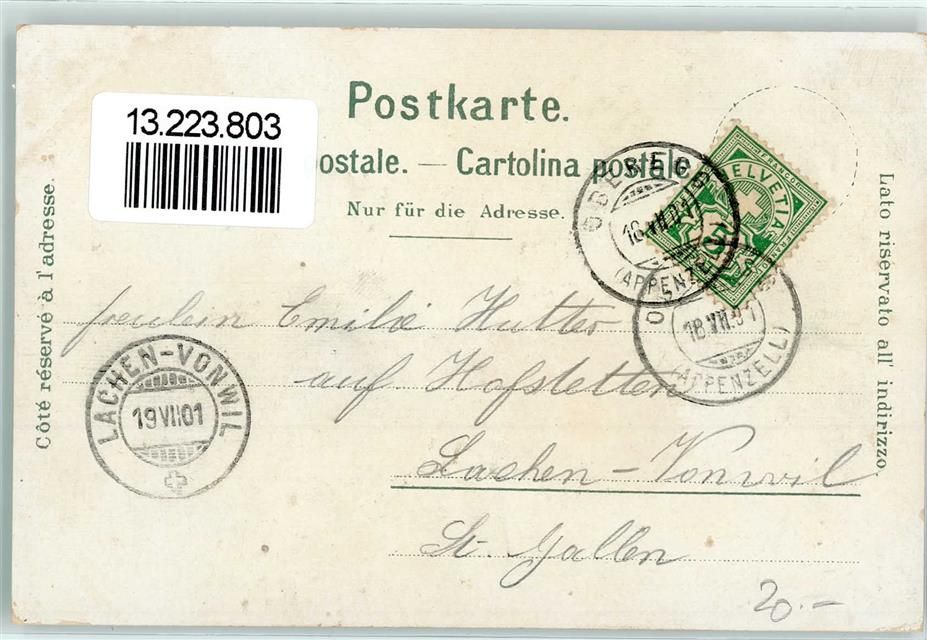 Postkarte.
13.223.803
postale. — Cartolina postale
Nur für die Adresse.
Côté réservé à l'adresse.
Lato riservato all' indirizzo.
HELVETIA
FRANCO
OBEREGG
18.VII.01
(APPENZELL)
18.VII.01
(APPENZELL)
freulein Emilie Hutter
auf Hofstetten
Lachen-Vonwil
St. Gallen
LACHEN-VONWIL
19 VII 01
20.-